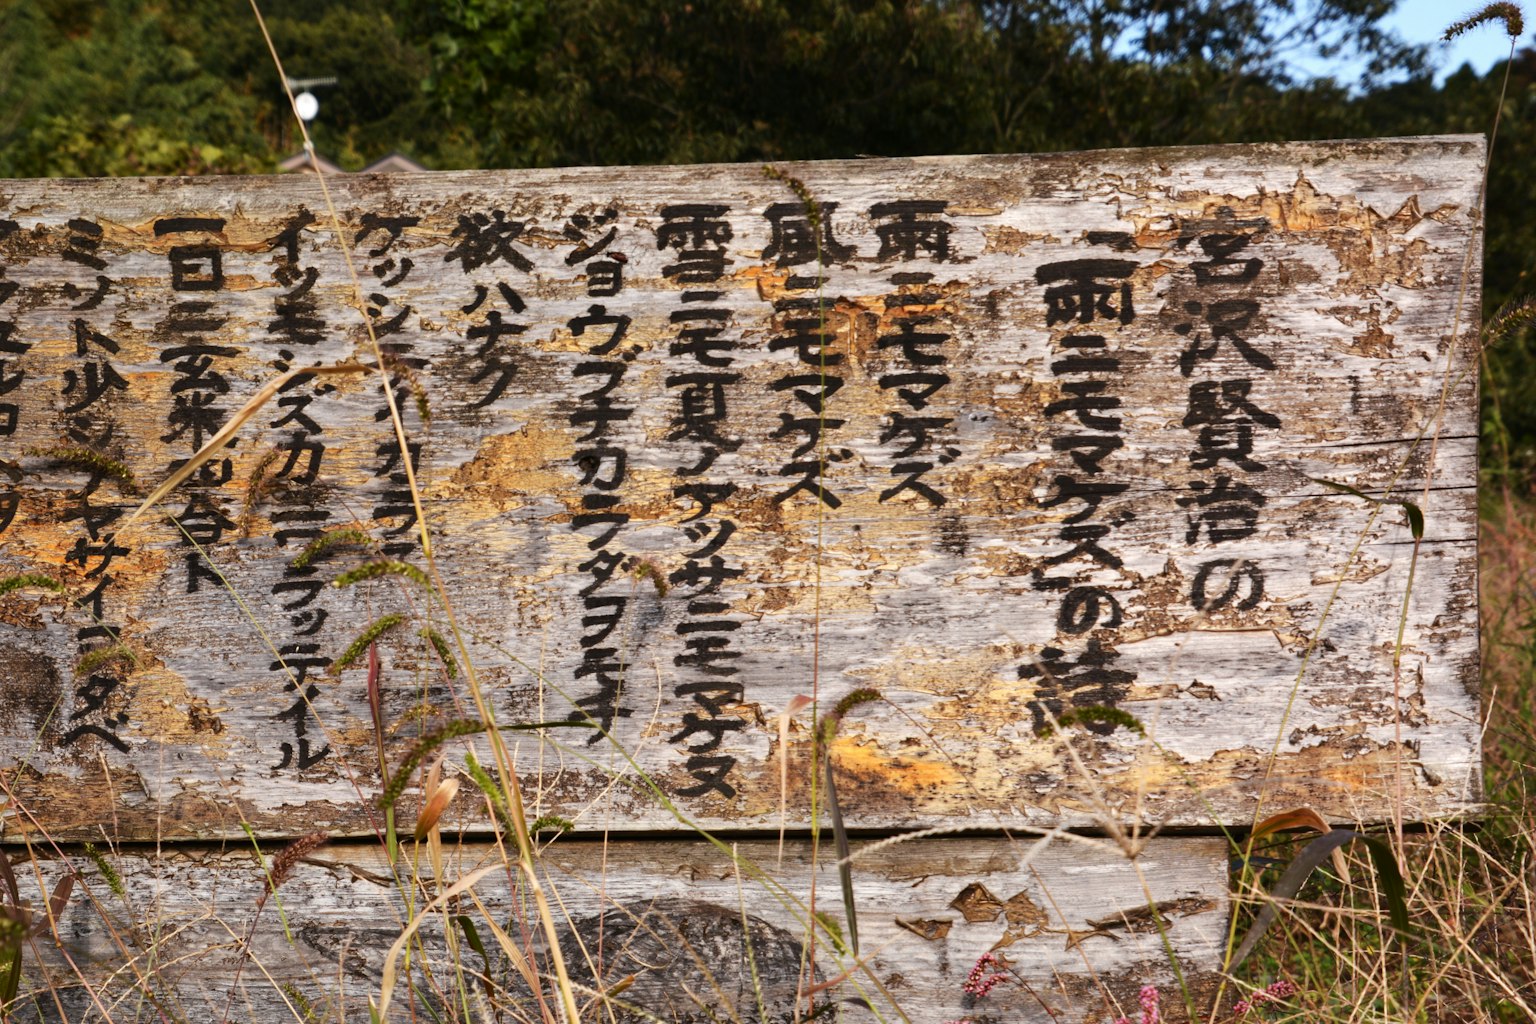 宮沢賢治の
「雨ニモマケズ」の詩
雨ニモマケズ
風ニモマケズ
雪ニモ夏ノアツサニモマケヌ
ジョウブナカラダヲモチ
欲ハナク
ケッシテイカラズ
イツモシズカニワラッテイル
一日ニ玄米四合ト
ミソト少シノヤサイヲタベ